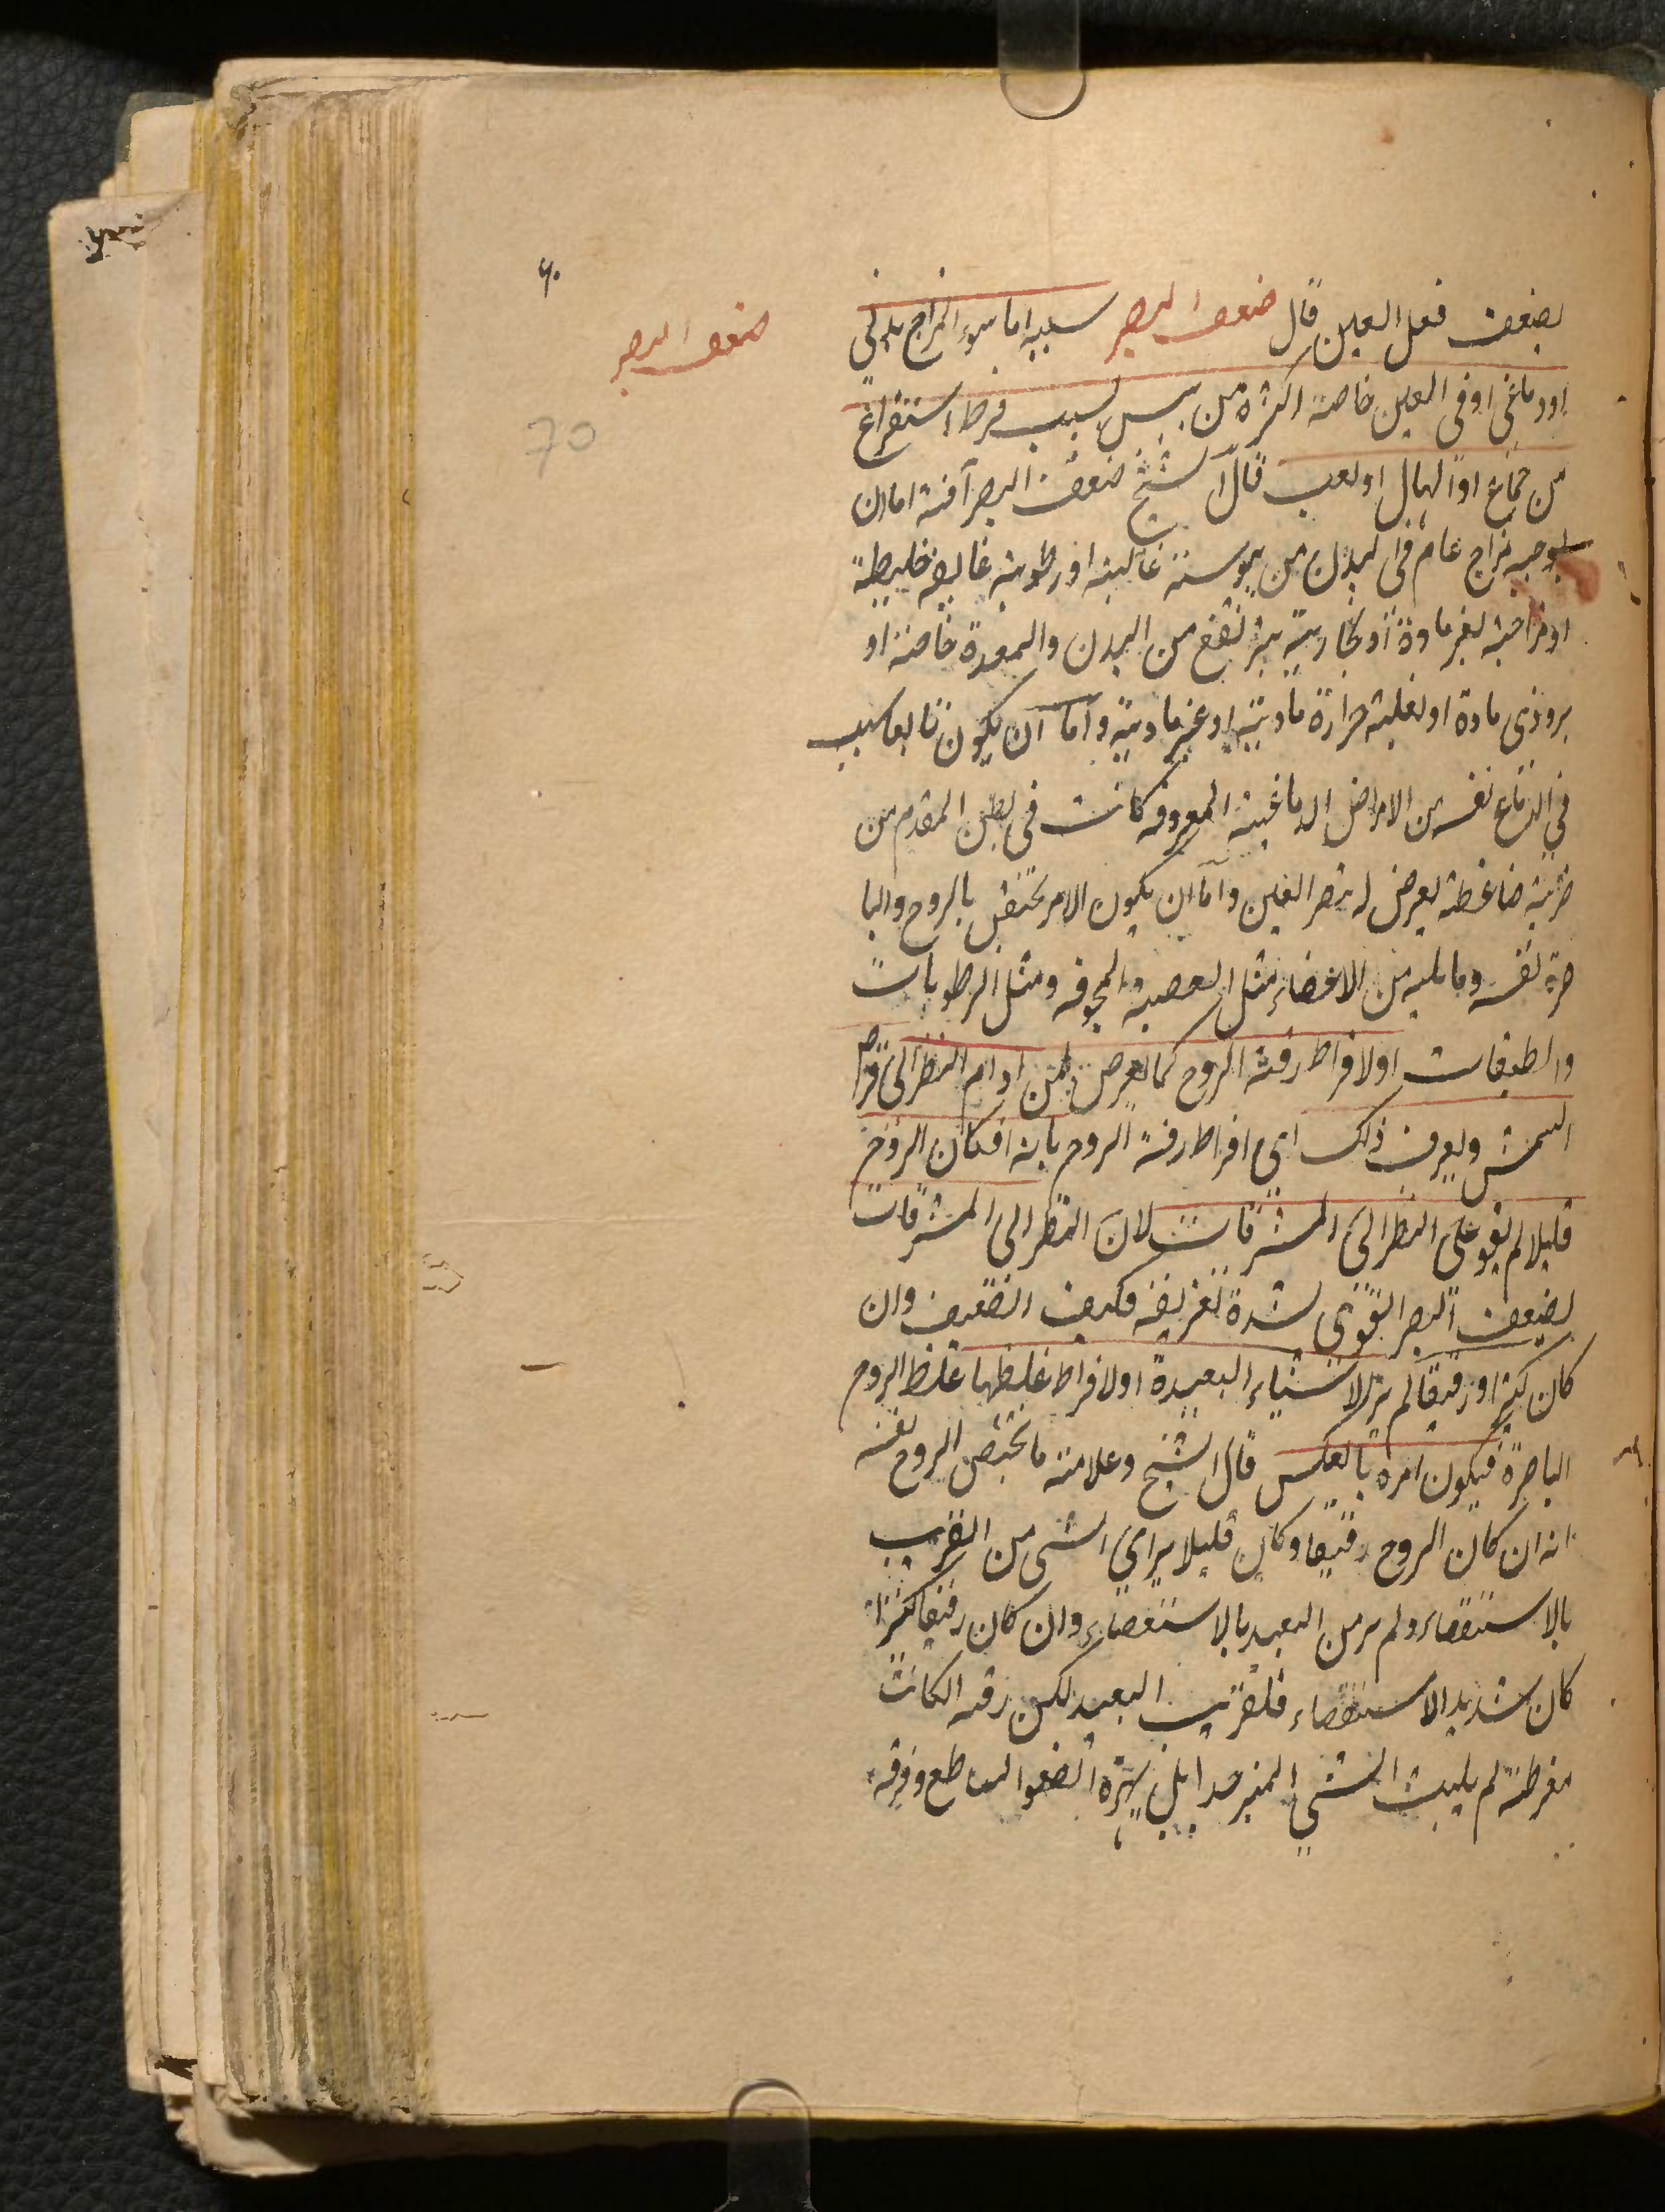 ٧٠
ضعف البصر
70
يضعف فعل العين قال ضعف البصر سببه اما سوء المزاج بدني
او دماغي او في العين خاصة اكثره من يبس بسبب فرط استفراغ
من جماع او اسهال او تعب قال الشيخ ضعف البصر آفته اما ان
يوجبه مزاج عام في البدن من يبوسته غالبته او رطوبته غالبة خليطة
او مزاجية بغير مادة او بخارية يرتفع من البدن والمعدة خاصة او
برد ذي مادة او لغلبة حرارة مادية او غير مادية واما ان يكون تابعا لسبب
في الدماغ نفسه من الامراض الدماغية المعروفة كانت في بطن المقدم من
ضربة ضاغطة يعرض له يضر العين واما ان يكون الامر يختص بالروح والبا
صرة نفسه وما يليه من الاعضاء مثل العصبة والمجوفة ومثل الرطوبات
والطبقات او لافراط رقة الروح كما يعرض لمن ادام النظر الى قرص
الشمس ويعرف ذلك اي افراط رقة الروح بانه ان كان الروح
قليلا لم يقو على النظر الى المشرقات لان النظر الى المشرقات
يضعف البصر القوي لشدة تفريقه فكيف الضعيف وان
كان كثيرا ورقيقا لم ير الاشياء البعيدة او لافراط غلظها غلظ الروح
الباصرة فيكون امره بالعكس قال الشيخ وعلامة ما يختص الروح نفسه
انه ان كان الروح رقيقا وكان قليلا يراي الشي من القريب
بالاستقصاء ولم ير من البعيد بالاستقصاء وان كان رقيقا كثيرا
كان شديد الاستقصاء فلقريب البعيد لكن رقته الكانت
مفرطة لم يلبث الشي المنير جدا بل يبهره الضوء الساطع وفرقه